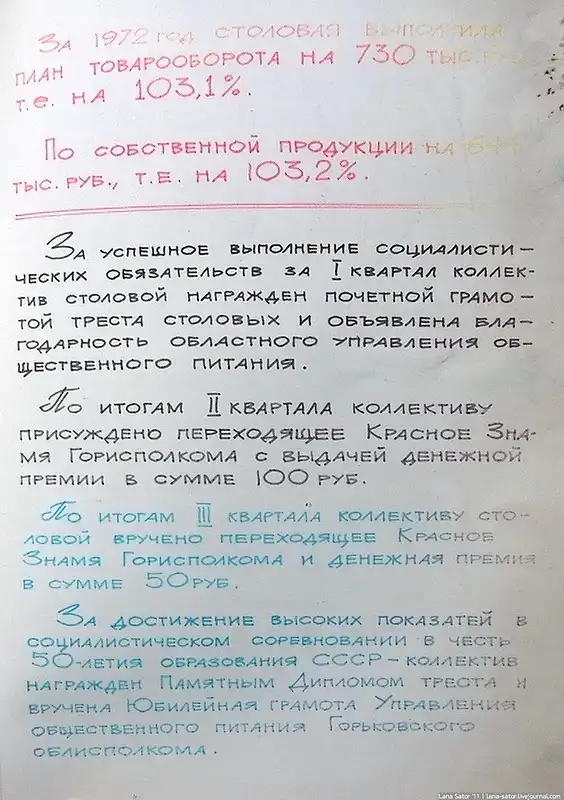 За 1972 год столовая выполнила
план товарооборота на 730 тыс.руб.,
т.е. на 103,1%.
По собственной продукции на
тыс.руб., т.е. на 103,2%.
За успешное выполнение социалисти–
ческих обязательств за I квартал коллек-
тив столовой награжден почетной грамо–
той треста столовых и объявлена бла-
годарность областного управления об-
щественного питания.
По итогам II квартала коллективу
присуждено переходящее Красное Зна-
мя Горисполкома с выдачей денежной
премии в сумме 100 руб.
По итогам III квартала коллективу сто-
ловой вручено переходящее Красное
Знамя Горисполкома и денежная премия
в сумме 50 руб.
За достижение высоких показатей в
социалистическом соревновании в честь
50-летия образования СССР – коллектив
награжден Памятным Дипломом треста и
вручена Юбилейная грамота Управления
общественного питания Горьковского
облисполкома.
Lana Sator '11 | lana-sator.livejournal.com